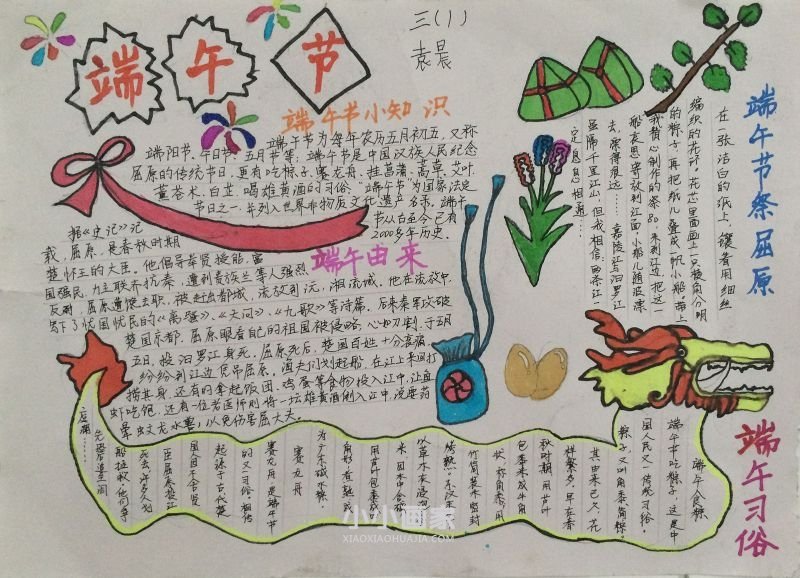 端午节
三(1)
袁晨
端午节小知识
端午节为每年农历五月初五，又称
端阳节、午日节、五月节等；端午节是中国汉族人民纪念
屈原的传统节日，更有吃粽子，赛龙舟，挂菖蒲、蒿草、艾叶，
薰苍术、白芷，喝雄黄酒的习俗。"端午节"为国家法定
节日之一，并列入世界非物质文化遗产名录。端午
节从古至今已有
2000多年历史。
端午由来
据《史记》记
载，屈原，是春秋时期
楚怀王的大臣。他倡导举贤授能，富
国强民，力主联齐抗秦，遭到贵族兰等人强烈
反对，屈原遭馋去职，被赶出都城，流放到沅、湘流域。他在流放中，
写下了忧国忧民的《离骚》、《天问》、《九歌》等诗篇，后来秦军攻破
楚国京都，屈原眼看自己的祖国被侵略，心如刀割，于五月
五日，投汨罗江身死，屈原死后，楚国百姓十分哀痛，
纷纷到江边凭吊屈原。渔夫们划起船，在江上来回打
捞其身，还有的拿起饭团，鸡蛋等食物投入江中，让鱼
虾吃饱，还有一位老医师则将一坛雄黄酒倒入江中，说要药
晕蛟龙水兽，以免伤害屈大夫。
端午节祭屈原
在一张洁白的纸上，镶着用细丝
编织的花环，花芯里面画上一只棱角分明
的粽子，再把纸儿叠成一帆小船，带上
去，漂得很远……嘉陵江与汨罗江
虽隔千里江山，但我相信：两条江一
定息息相通……
端午习俗
端午食粽
端午节吃粽子，这是中
国人民又一传统习俗。
粽子又叫角黍、筒粽。
其由来已久，花
样繁多。早在春
秋时期，用菰叶
包黍米成牛角
状，称角黍；用
竹筒装米密封
烤熟，
以草木灰浸泡
米，因水中含碱
用菰叶包黍成
角形，煮熟成
为广东碱水粽。
赛龙舟
赛龙舟，是端午节
的又一习俗。相传
起源于古代楚
国人因舍不得贤
臣屈原投江
死去，许多人划
船追救，他们争
先恐后，追至洞
庭湖……
小小画家
XIAOXIAOHUAJIA.COM